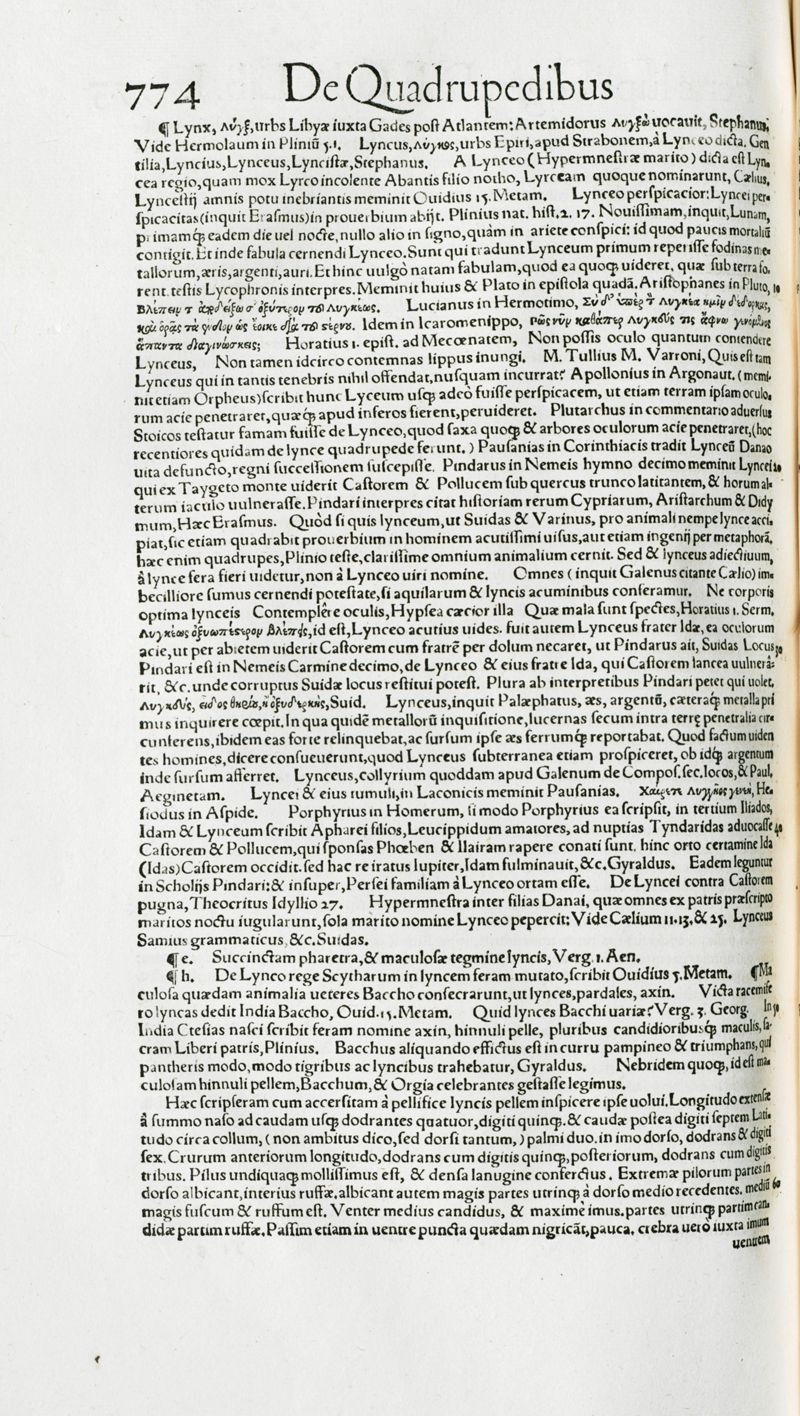 774 De Quadrupedibus
¶ Lynx, λύγξ, urbs Libyæ iuxta Gades post Atlantem: Artemidorus uocauit, Stephanus,
Vide Hermolaum in Pliniũ 5.1. Lyncus, λύγκος, urbs Epiri, apud Strabonem, à Lynceo dicta. Gen
tilia, Lyncius, Lynceus, Lyncistæ, Stephanus. A Lynceo (Hypermnestræ marito) dicta est Lyn,
cea regio, quam mox Lyrco incolente Abantis filio notho, Lyrceam quoque nominarunt, Cælius,
Lyncestij amnis potu inebriantis meminit Ouidius 15. Metam. Lynceo perspicacior: Lyncei per-
spicacitas (inquit Erasmus) in prouerbium abijt. Plinius nat. hist. 2. 17. Nouissimam, inquit, Lunam,
primamq̃ eadem die uel nocte, nullo alio in signo, quàm in ariete conspici: id quod paucis mortaliũ
contigit. Et inde fabula cernendi Lynceo. Sunt qui tradunt Lynceum primum reperisse fodinas me-
tallorum, æris, argenti, auri. Et hinc uulgò natam fabulam, quod ea quoq̃ uideret, quæ sub terra fo,
rent. testis Lycophronis interpres. Meminit huius & Plato in epistola quadã. Aristophanes in Pluto, 10
Βλέπειν τ λυγκέως. Lucianus in Hermotimo,
Idem in Icaromenippo,
Horatius 1. epist. ad Mecœnatem, Non possis oculo quantum contendere
Lynceus, Non tamen idcirco contemnas lippus inungi. M. Tullius M. Varroni, Quis est tam
Lynceus qui in tantis tenebris nihil offendat, nusquam incurrat? Apollonius in Argonaut. (memi-
nit etiam Orpheus) scribit hunc Lyceum usq̃ adeò fuisse perspicacem, ut etiam terram ipsam oculo,
rum acie penetraret, quæq̃ apud inferos fierent, peruideret. Plutarchus in commentario aduersus
Stoicos testatur famam fuisse de Lynceo, quod saxa quoq̃ & arbores oculorum acie penetraret, (hoc
recentiores quidam de lynce quadrupede ferunt.) Pausanias in Corinthiacis tradit Lynceũ Danao
uita defuncto, regni successionem suscepisse. Pindarus in Nemeis hymno decimo meminit Lyncei 20
qui ex Taygeto monte uiderit Castorem & Pollucem sub quercus trunco latitantem, & horum al-
terum iaculo uulnerasse. Pindari interpres citat historiam rerum Cypriarum, Aristarchum & Didy
mum, Hæc Erasmus. Quòd si quis lynceum, ut Suidas & Varinus, pro animali nempe lynce acci,
piat, sic etiam quadrabit prouerbium in hominem acutissimi uisus, aut etiam ingenij per metaphorã,
hæc enim quadrupes, Plinio teste, clarissime omnium animalium cernit. Sed & lynceus adiectiuum,
à lynce fera fieri uidetur, non à Lynceo uiri nomine. Omnes (inquit Galenus citante Cælio) im-
becilliore sumus cernendi potestate, si aquilarum & lyncis acuminibus conferamur. Ne corporis
optima lynceis Contemplêre oculis, Hypsea cæcior illa Quæ mala sunt spectes, Horatius 1. Serm,
Λυγκέως ὀξυωπέστερον βλέπεις, id est, Lynceo acutius uides. fuit autem Lynceus frater Idæ, ea oculorum
acie, ut per abietem uiderit Castorem cum fratrẽ per dolum necaret, ut Pindarus ait, Suidas Locus 30
Pindari est in Nemeis Carmine decimo, de Lynceo & eius fratre Ida, qui Castorem lancea uulnerâ-
rit, &c. unde corruptus Suidæ locus restitui potest. Plura ab interpretibus Pindari petet qui uolet,
Suid. Lynceus, inquit Palæphatus, æs, argentũ, cæteraq̃ metalla pri
mus inquirere cœpit. In qua quidẽ metallorũ inquisitione, lucernas secum intra terrę penetralia cir-
cunferens, ibidem eas forte relinquebat, ac sursum ipse æs ferrumq̃ reportabat. Quod factum uiden
tes homines, dicere consueuerunt, quod Lynceus subterranea etiam prospiceret, ob idq̃ argentum
inde sursum afferret. Lynceus, collyrium quoddam apud Galenum de Compos. sec. locos, & Paul,
Aeginetam. Lyncei & eius tumuli, in Laconicis meminit Pausanias. He,
siodus in Aspide. Porphyrius in Homerum, si modo Porphyrius ea scripsit, in tertium Iliados,
Idam & Lynceum scribit Apharei filios, Leucippidum amatores, ad nuptias Tyndaridas aduocasse 40
Castorem & Pollucem, qui sponsas Phœben & Ilairam rapere conati sunt. hinc orto certamine Ida
(Idas) Castorem occidit. sed hac re iratus Iupiter, Idam fulminauit, &c. Gyraldus. Eadem leguntur
in Scholijs Pindari: & insuper, Persei familiam à Lynceo ortam esse. De Lyncei contra Castorem
pugna, Theocritus Idyllio 27. Hypermnestra inter filias Danai, quæ omnes ex patris præscripto
maritos noctu iugularunt, sola marito nomine Lynceo pepercit: Vide Cælium 11.13. & 25. Lynceus
Samius grammaticus &c. Suidas.
¶ e. Succinctam pharetra, & maculosæ tegmine lyncis, Verg. 1. Aen.
¶ h. De Lynco rege Scytharum in lyncem feram mutato, scribit Ouidius 5. Metam. ¶ Ma
culosa quædam animalia ueteres Baccho consecrarunt, ut lynces, pardales, axin. Victa racemife
ro lyncas dedit India Baccho, Ouid. 15. Metam. Quid lynces Bacchi uariæ? Verg. 3. Georg. In 50
India Ctesias nasci scribit feram nomine axin, hinnuli pelle, pluribus candidioribusq̃ maculis, sa-
cram Liberi patris, Plinius. Bacchus aliquando effictus est in curru pampineo & triumphans, qui
pantheris modo, modo tigribus ac lyncibus trahebatur, Gyraldus. Nebridem quoq̃, id est ma-
culosam hinnuli pellem, Bacchum, & Orgia celebrantes gestasse legimus.
Hæc scripseram cum accersitam à pellifice lyncis pellem inspicere ipse uolui. Longitudo extensæ
â summo naso ad caudam usq̃ dodrantes quatuor, digiti quinq̃. & caudæ postea digiti septem Lati-
tudo circa collum, (non ambitus dico, sed dorsi tantum,) palmi duo. in imo dorso, dodrans & digiti
sex. Crurum anteriorum longitudo, dodrans cum digitis quinq̃, posteriorum, dodrans cum digitis
tribus. Pilus undiquaq̃ mollissimus est, & densa lanugine confertus. Extremæ pilorum partes in
dorso albicant, interius ruffæ, albicant autem magis partes utrinq̃ à dorso medio recedentes. mediũ 60
magis fuscum & ruffum est. Venter medius candidus, & maximè imus. partes utrinq̃ partim can-
didæ partim ruffæ. Passim etiam in uentre puncta quædam nigricãt, pauca, crebra uerò iuxta imum
uentrem